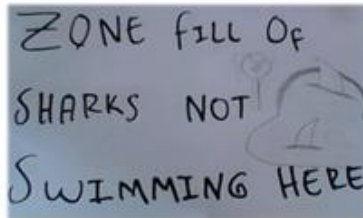 ZONE FILL OF
SHARKS NOT
SWIMMING HERE